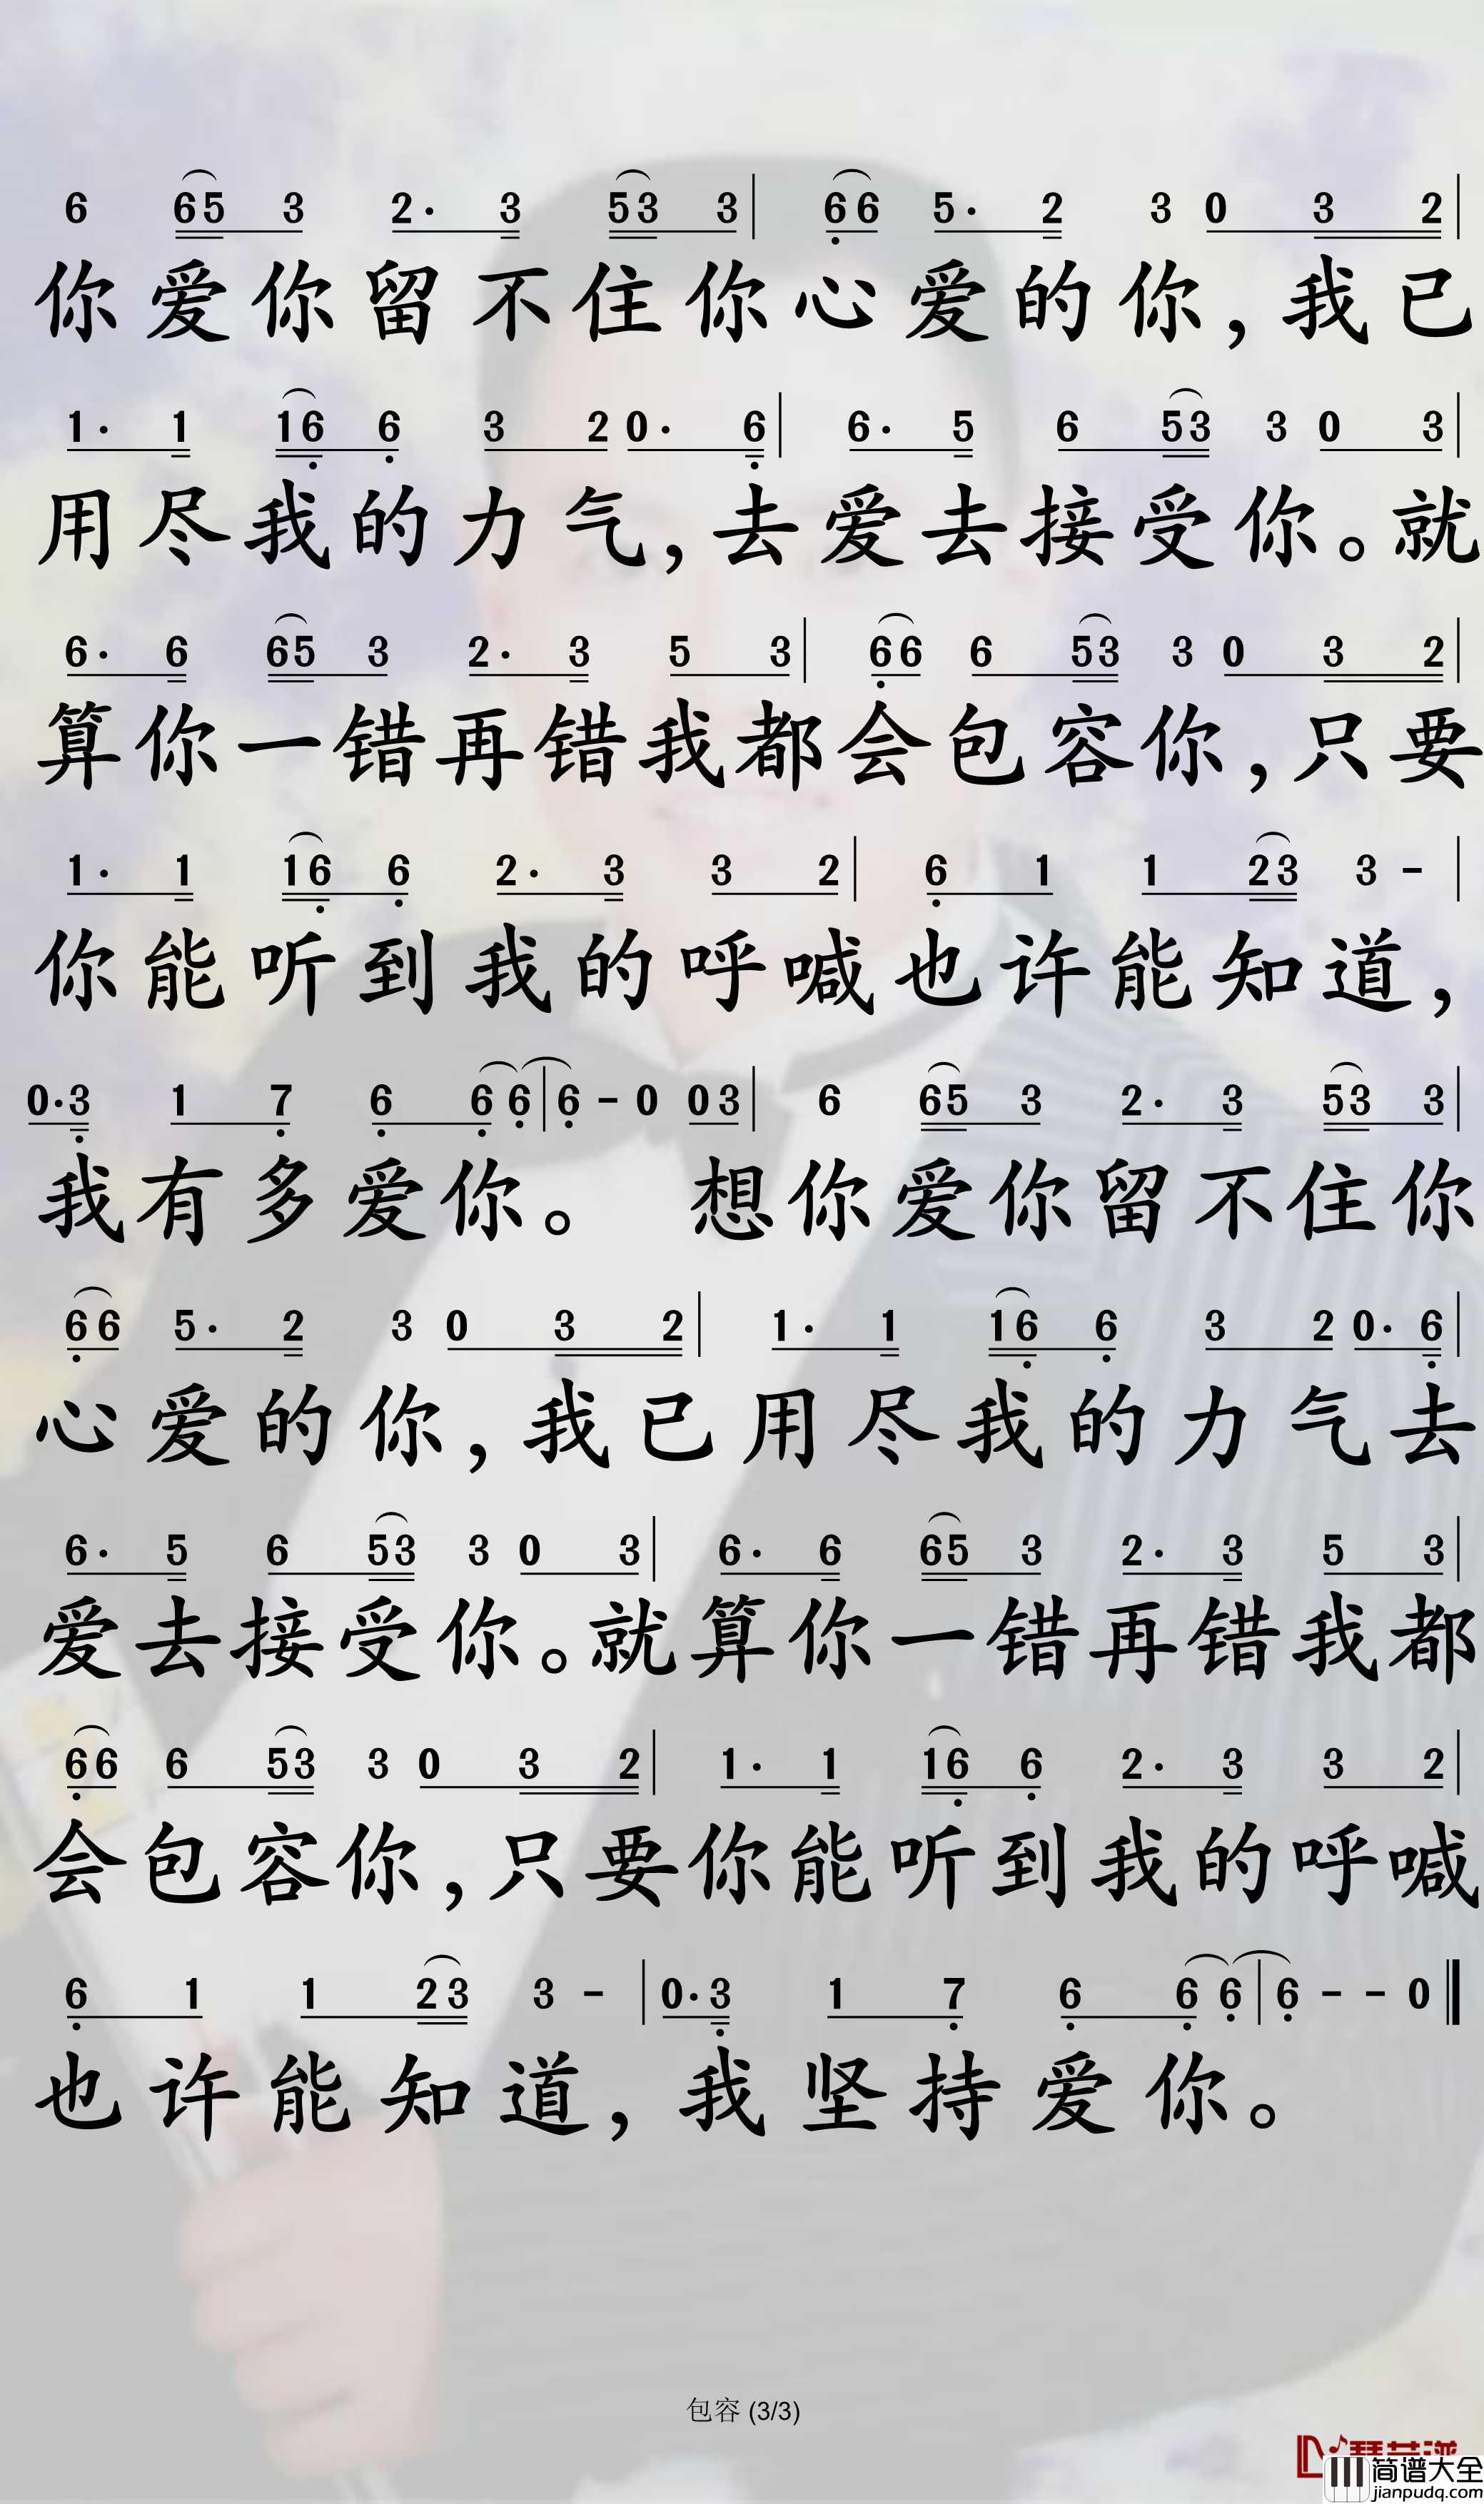 6 65 3 2· 3 53 3 | 66 5· 2 3 0 3 2 |
你爱你留不住你心爱的你,我已
1· 1 16 6 3 2 0· 6 | 6· 5 6 53 3 0 3 |
用尽我的力气,去爱去接受你。就
6· 6 65 3 2· 3 5 3 | 66 6 53 3 0 3 2 |
算你一错再错我都会包容你,只要
1· 1 16 6 2· 3 3 2 | 6 1 1 23 3 - |
你能听到我的呼喊也许能知道,
0·3 1 7 6 6 6 | 6 - 0 03 | 6 65 3 2· 3 53 3 |
我有多爱你。 想你爱你留不住你
66 5· 2 3 0 3 2 | 1· 1 16 6 3 2 0· 6 |
心爱的你,我已用尽我的力气去
6· 5 6 53 3 0 3 | 6· 6 65 3 2· 3 5 3 |
爱去接受你。就算你一错再错我都
66 6 53 3 0 3 2 | 1· 1 16 6 2· 3 3 2 |
会包容你,只要你能听到我的呼喊
6 1 1 23 3 - | 0·3 1 7 6 6 6 | 6 - - 0 ‖
也许能知道,我坚持爱你。
包容 (3/3)
简谱大全
jianpudq.com